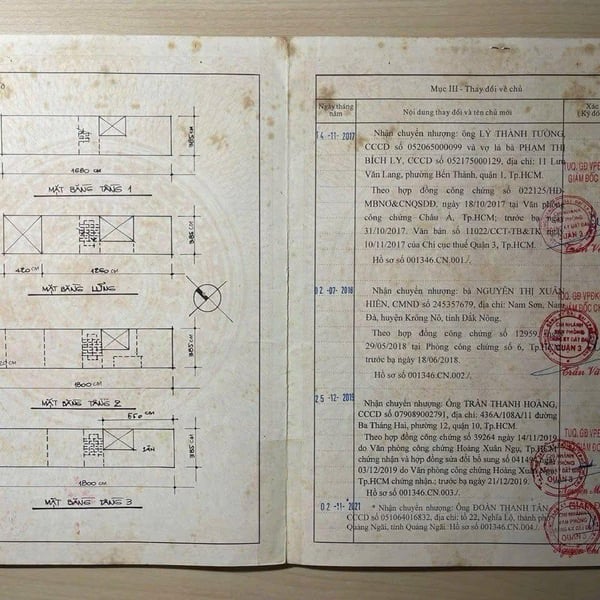 385 CM
1680 CM
MẶT BẰNG TẦNG 1
385 CM
420 CM
1260 CM
MẶT BẰNG LỬNG
385 CM
1800 CM
MẶT BẰNG TẦNG 2
550 CM
SÂN
385 CM
1800 CM
MẶT BẰNG TẦNG 3
Mục III - Thay đổi về chủ
Ngày tháng năm
Nội dung thay đổi và tên chủ mới
Xác
(Ký đó
14 -11- 2017
Nhận chuyển nhượng: ông LÝ THÀNH TƯỜNG,
CCCD số 052065000099 và vợ là bà PHẠM THỊ
BÍCH LY, CCCD số 052175000129, địa chỉ: 11 Lưu
Văn Lang, phường Bến Thành, quận 1, Tp.HCM.
Theo hợp đồng công chứng số 022125/HĐ-
MBNO&CNQSDĐ, ngày 18/10/2017 tại Văn phòng
công chứng Châu Á, Tp.HCM; trước bạ ngày
31/10/2017. Văn bản số 11022/CCT-TB&TK ngày
10/11/2017 của Chi cục thuế Quận 3, Tp.HCM.
Hồ sơ số 001346.CN.001./.
TUQ. GĐ VPĐ
GIÁM ĐỐC
QUẬN 3
02 -07- 2018
Nhận chuyển nhượng: bà NGUYỄN THỊ XUÂN
HIÊN, CMND số 245357679, địa chỉ: Nam Sơn, Nam
Đà, huyện Krông Nô, tỉnh Đắk Nông.
Theo hợp đồng công chứng số 12959
29/05/2018 tại Phòng công chứng số 6, Tp.H
trước bạ ngày 18/06/2018.
Hồ sơ số 001346.CN.002./.
TUQ. GĐ VPĐK
GIÁM ĐỐC CH
CHI NHÁNH
VĂN PHÒNG
ĐĂNG KÝ ĐẤT ĐAI
QUẬN 3
Trần Vă
25 -12- 2019
Nhận chuyển nhượng: Ông TRẦN THANH HOÀNG,
CCCD số 079089002791, địa chỉ: 436A/108A/11 đường
Ba Tháng Hai, phường 12, quận 10, Tp.HCM.
Theo hợp đồng công chứng số 39264 ngày 14/11/2019
do Văn phòng công chứng Hoàng Xuân Ngụ, Tp.HCM
chứng nhận và hợp đồng sửa đổi bổ sung số 041494 ngày
03/12/2019 do Văn phòng công chứng Hoàng Xuân Ngụ
Tp.HCM chứng nhận.; trước bạ ngày 21/12/2019.
Hồ sơ số 001346.CN.003./.
TUQ. GĐ
GIÁM
CHI NHÁNH
VĂN PHÒNG
QUẬN 3
02 -11- 2021
* Nhận chuyển nhượng: Ông ĐOÀN THANH TÂN,
CCCD số 051064016832, địa chỉ: tổ 22, Nghĩa Lộ, thành phố
Quảng Ngãi, tỉnh Quảng Ngãi. Hồ sơ số 001346.CN.004./.
GIÁM
CHI NHÁNH
VĂN PHÒNG